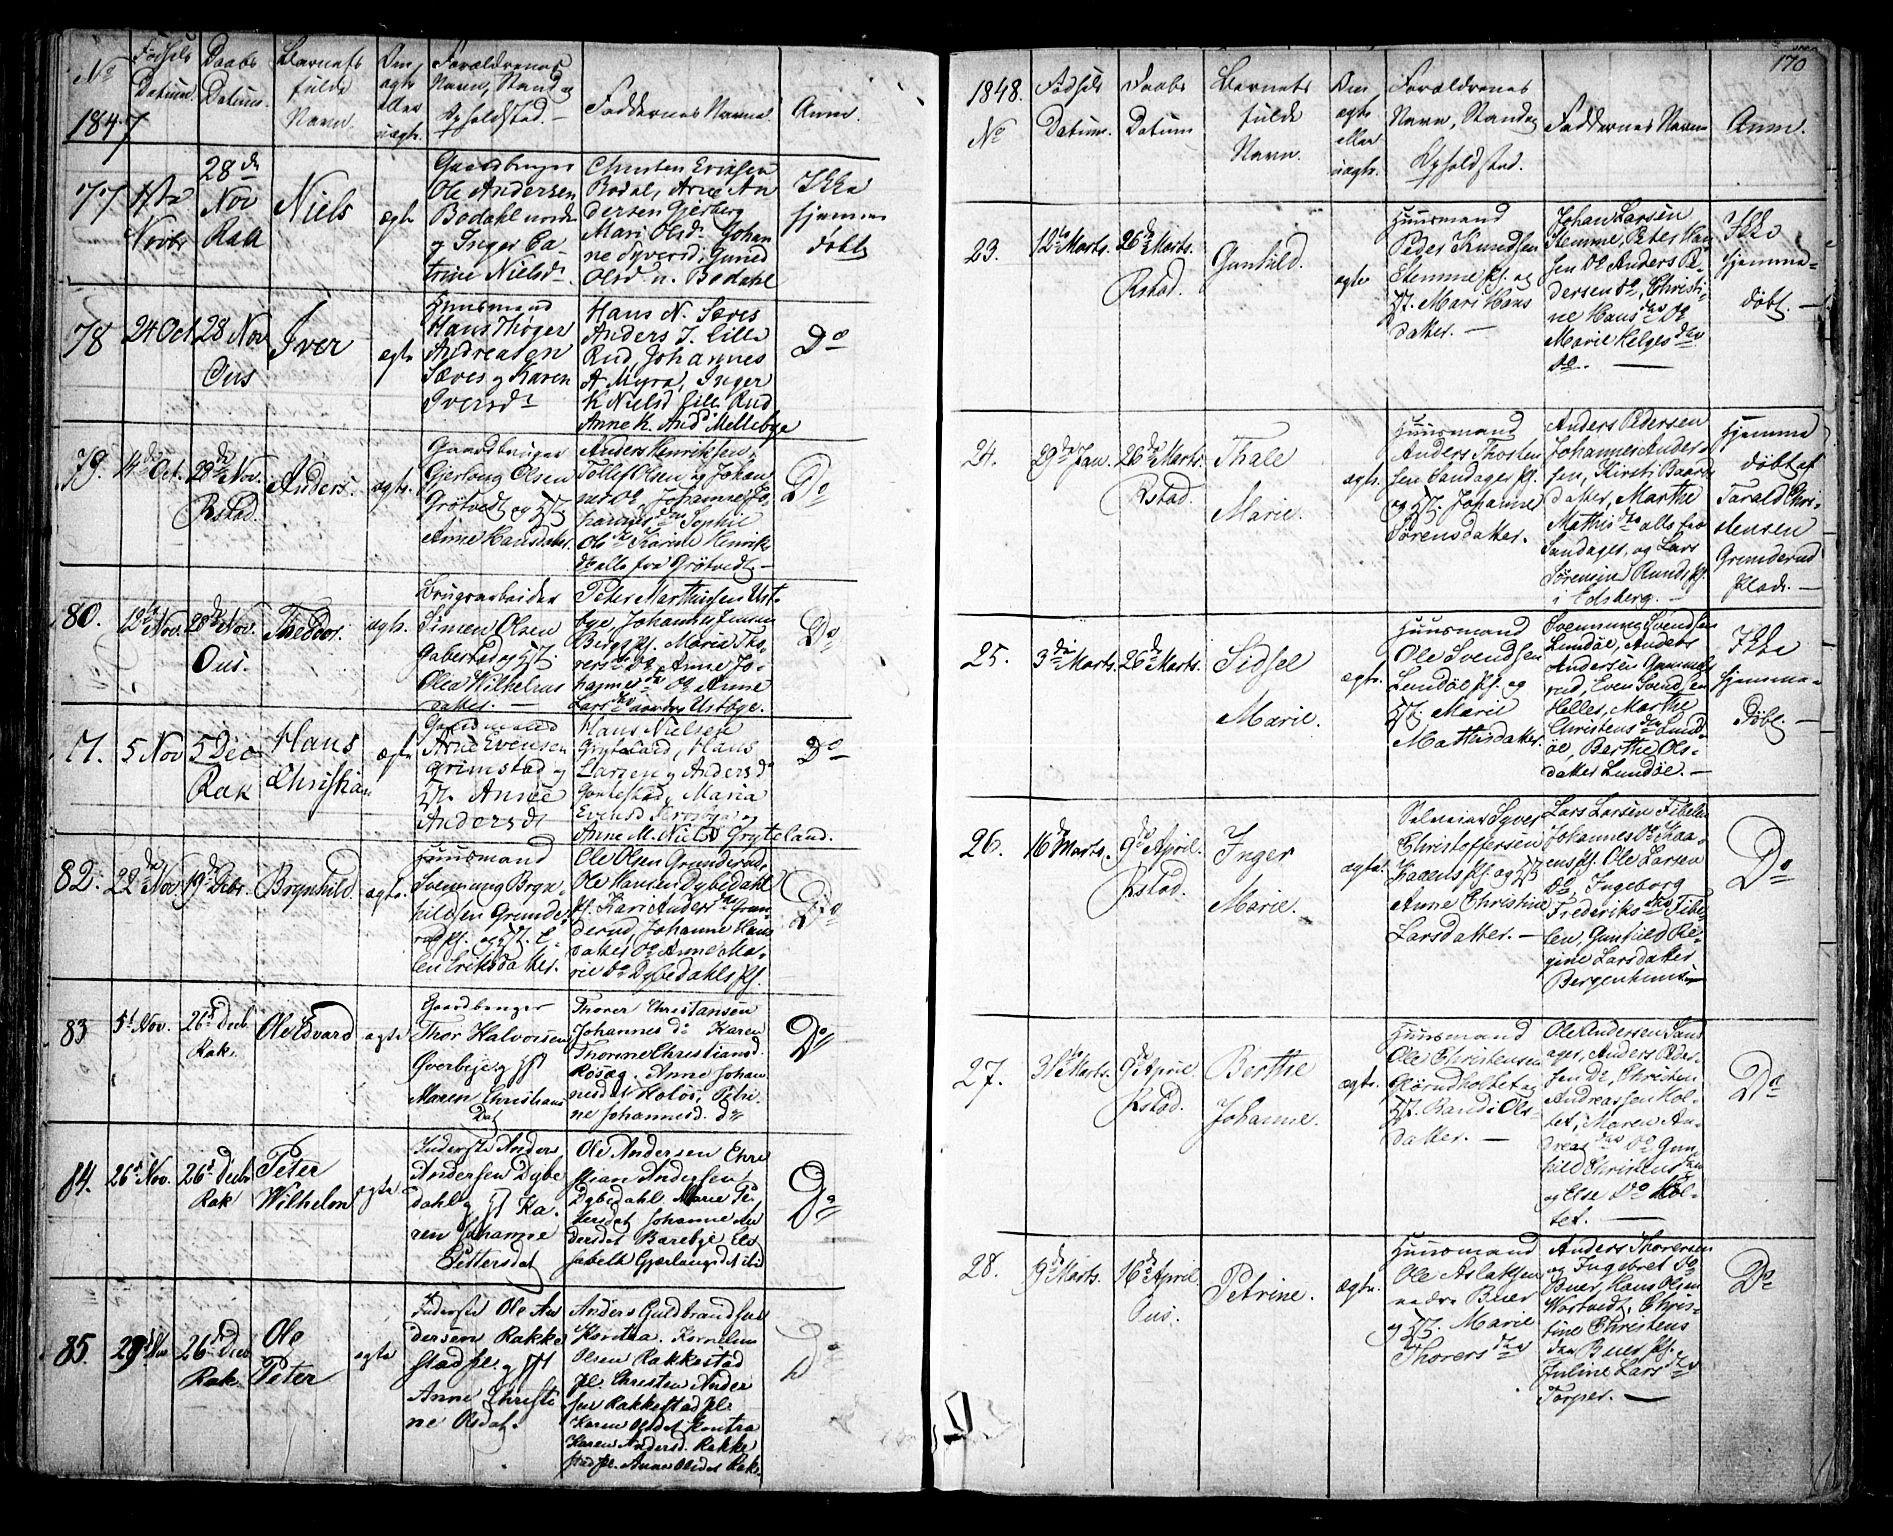 No
1847
Fødsels
Datum.
Daabs
Datum.
Barnets
fulde
Navn.
Om
ægte
eller
uægte.
Forældrenes
Navn, Stand og
Opholdsted.
Faddernes Navne
Anm.
77
Novbr
28de
Nov
Rak
Niels
ægte
Gaardbruger
Ole Andersen
Bodahl nordre
og Inger Ca-
trine Nielsdr
Christen Eriksen
Bodal, Arne An
dersen Gjerberg
Mari Olsdr Johan
ne Syversd, Gunild
Olsd n. Bodahl
Ikke
hjemme
døbt
78
24 Oct
28 Nov
Ous
Iver
ægte
Huusmand
Hans Thøger
Andreasen
Sæves og Karen
Iversdr
Hans N. Sæves
Anders J. Lille
Rud, Johannes
A Myra, Inger
K Nielsd Lille Rud
Anne K. Andd Mellebye
Do
79.
14de Oct.
28de Nov.
Rstad.
Anders.
ægte.
Gaardbruger
Gjerlaug Olsen
Grøtvedt og H.
Anne Hansdatter.
Anders Henriksen,
Tollef Olsen og Johan-
nes Do, Johanne Jo-
hannesdtr Sophie
Olsdtr Karine Henriks
dr alle fra Grøtvedt
Do
80.
12te Nov.
28de Nov.
Ous.
Theodor.
ægte.
Brugsarbeider
Simen Olsen
Gabestad og H.
Olea Wilhelms
datter.
Peter Marthisen Ust-
bye, Johannes Jensen
Berg pl. Maria Tho-
rersdr Do, Anne Jo-
hannesdr Do Anne
Larsdr nordre Ustbye.
Do
17.
5 Nov
5 Dec
Rak
Hans
Christian
ægte
Gaardmand
Arne Evensen
Grimstad og
H. Anne
Andersdr
Hans Nielsen
Gryteland, Hans
Larsen og Anders do
Maria
Evensd
Anne M. Nielsd Gryteland.
Do
82.
22de Nov
19de Debr.
Brynhild.
ægte.
Huusmand
Svennung Bryn-
hildsen Grunde-
rud pl. og H. E-
len Eriksdatter.
Ole Olsen Grunderud,
Ole Hansen Dybedahl
pl. Kari Andersdtr Grun-
derud, Johanne Hans
datter Do Anne Ma-
rie Do Dybedahls pl.
Do
83
5t Nov.
26t Decb.
Rak.
Ole Edvard
ægte
Gaardbruger
Thor Halvorsen
Øverbye og H
Maren Christians
Dat
Thorer Christansen
Johannes do Karen
Thorine Christiansd.
Rosæg. Anne Johan
nesdat Holøs, Petri-
ne Johannesd. do
Do
84.
26t Nov.
26t Decb
Rak
Peter
Wilhelm
ægte
Inderste Anders
Andersen Dybe
dahl og H Ka-
ren Johanne
Pettersdat
Ole Andersen Chri
stian Andersen
Dybedahl Marie Pe
tersdat Johanne An
dersdat Barebye Els
sabeth Gjerlaugsdat ibid
Do
85.
29t Nov
26t Decb
Rak.
Ole
Peter
ægte
Inderste Ole An
dersen Rakke
stad pl. og H
Anne Christi
ne Olsdat.
Anders Guldbrandsen
Kontra. Kornelius
Olsen Rakkestad
pl. Christen Ander
sen Rakkestad pl.
Karen Olsdat Kontra
Karen Andersd. Rakke
stad pl. Anne Olsdat Rak.
Do
170
1848.
No
Fødsels
Datum.
Daabs
Datum
Barnets
fulde
Navn.
Om
ægte
eller
uægte.
Forældrenes
Navn, Stand og
Opholdsted.
Faddernes Navne
Anm.
23.
12te Marts.
26de Marts.
Rstad.
Gunhild.
ægte
Huusmand
Peder Knudsen
Stemme pl. og
H. Mari Hans
datter.
Johan Larsen
Stemme, Peter Han
sen Do Anders Pe-
dersen Do, Christi-
ne Hansdtr Do
Marie Helgesdtr
Do.
Ikke
hjemme-
døbt.
24.
29de Jan.
26de Marts.
Rstad.
Thale
Marie.
ægte.
Huusmand
Anders Thosten
sen Sandager pl.
og H. Johanne
Sørensdatter.
Anders Pedersen
Johannes Ander-
sen, Kirsti Baards
datter, Marthe
Mathisdtr alle fra
Sandager, og Lars
Sørensen Runds pl.
i Edsberg.
Hjemme
døbt af
Tarald Chri-
stensen
Grunderud
Plads.
25.
3die Marts.
26de Marts.
Sidsel
Marie.
ægte.
Huusmand
Ole Svendsen
Lundøe pl. og
H. Marie
Mathisdatter.
Svennung Svendsen
Lundøe, Anders
Andersen Gammels
rud, Even Svendsen
Heller, Marthe
Christensdtr Lund-
øe, Berthe Ols-
datter Lundøe.
Ikke
hjemme-
døbt.
26.
16de Marts.
9de April.
Rstad.
Inger
Marie.
ægte.
Selveier Syver
Christoffersen
Kaaens pl. og H
Anne Christine
Larsdatter.
Lars Larsen Fibelen
Johannes Do Kaa-
ens pl. Ole Larsen
Do, Ingeborg
Frederiksdtr Fibe-
len, Gunhild Re-
gine Larsdatter
Bergenhuus
Do
27.
31te Marts.
9de April
Rstad.
Berthe
Johanne.
ægte.
Huusmand
Ole Christensen
Kørundholtet og
H. Randi Ols-
datter.
Ole Andersen Sand
ager, Anders Peder-
sen Do, Christen
Andreassen Hol-
tet, Maren An-
dreasdtr Do Gun
hild Christensdtr
og Else Do Hol-
tet.
Do
28.
19de Marts.
16de April
Ous.
Petrine.
ægte.
Huusmand
Ole Aslaksen
nedre Buer
og H. Marie
Thorersdtr
Anders Thorersen
og Ingebret Do
Buer, Hans Olsen
Wortvedt, Chris-
tine Christens
dtr Buer pl.
Juline Larsdtr
Torper.
Do